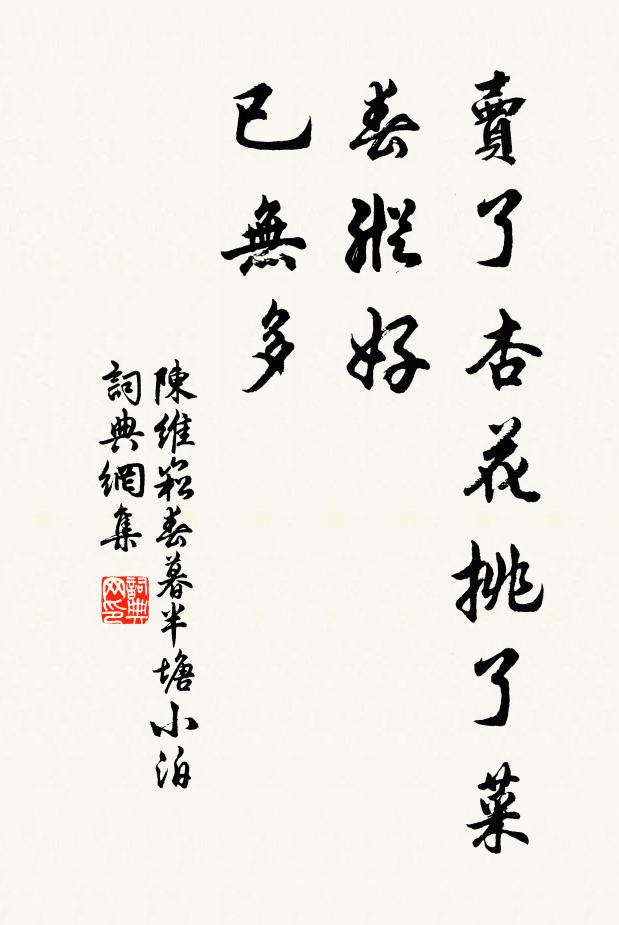 賣了杏花挑了菜
春縱好
已無多
陳維崧春暮半塘小泊
詞典網集
詞典网印